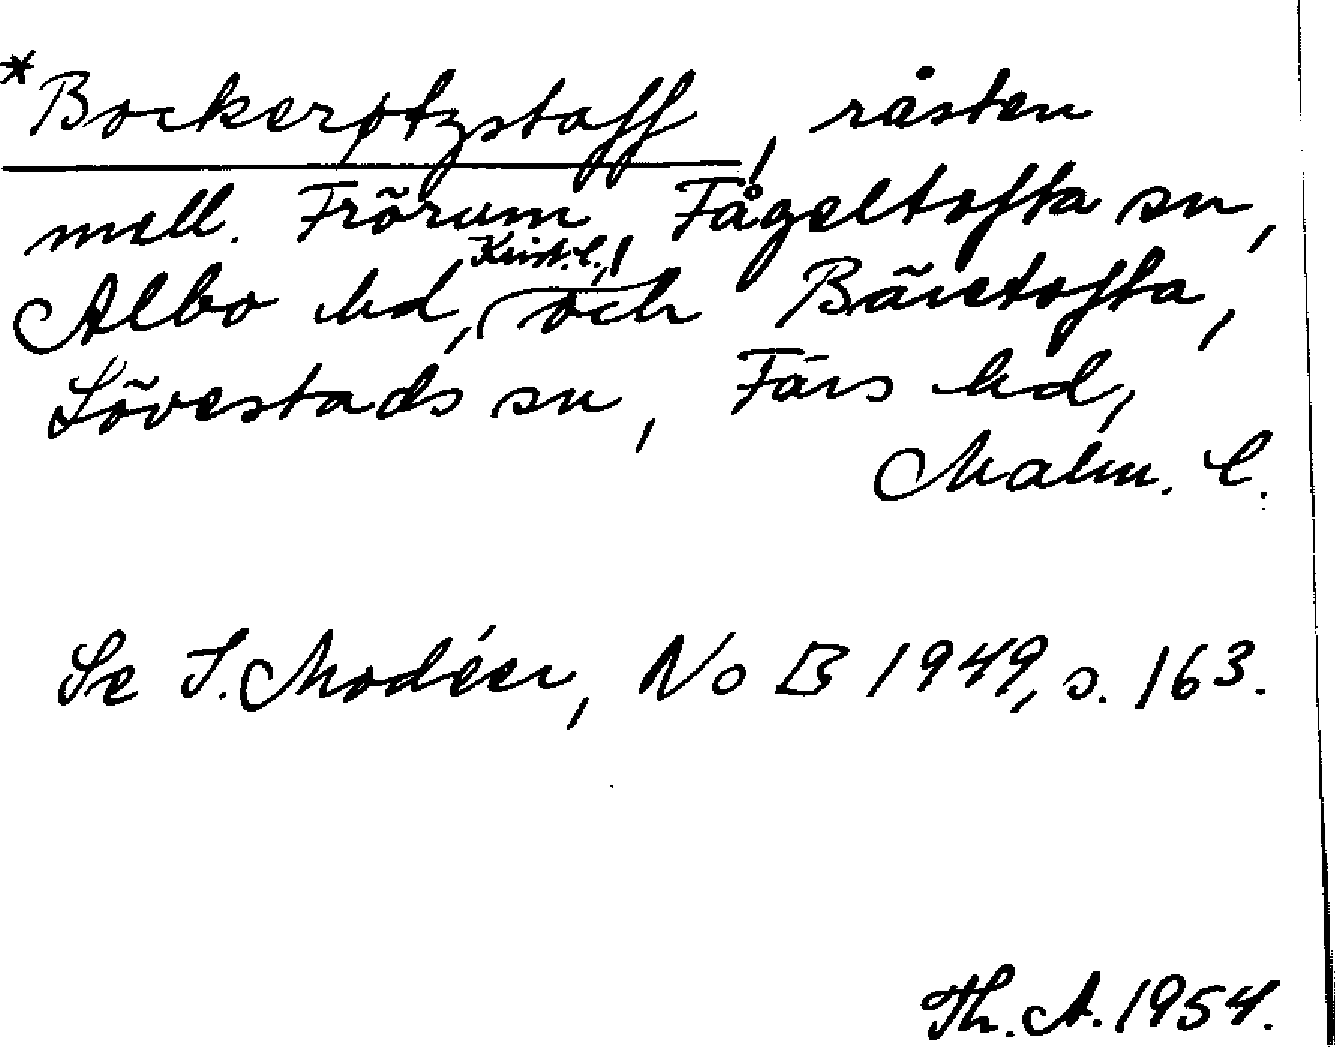 *Bockerøtzstaff, råsten
mell. Frörum, Fågeltofta sn,
Albo hd, Krist. l., och Bäretofta,
Lövestads sn, Färs hd,
Malm. l.
Se I. Modéer, NoB 1949, s. 163.
Th. A. 1954.